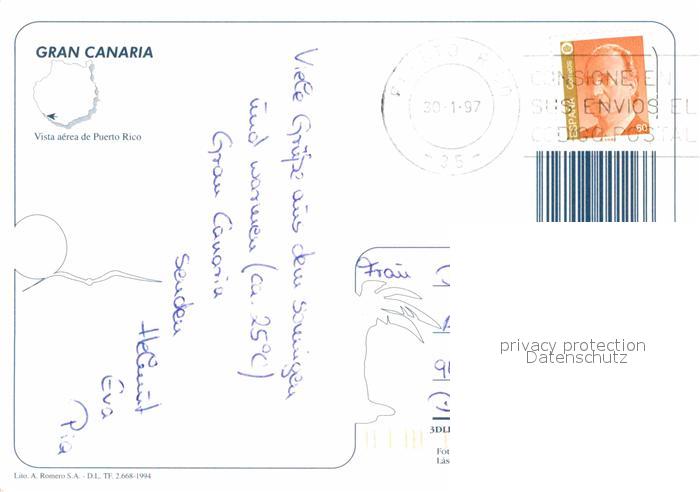 GRAN CANARIA
Vista aérea de Puerto Rico
Viele Grüße aus dem sonnigen
und warmen (ca. 25°C)
Gran Canaria
senden
Helmut
Eva
Pia
PUERTO RICO
30-1-97
-35-
CONSIGNE EN
SUS ENVIOS EL
CODIGO POSTAL
ESPAÑA Correos
60
Frau
privacy protection
Datenschutz
3DLI
Fot
Lás
Lito. A. Romero S.A. - D.L. TF. 2.668-1994